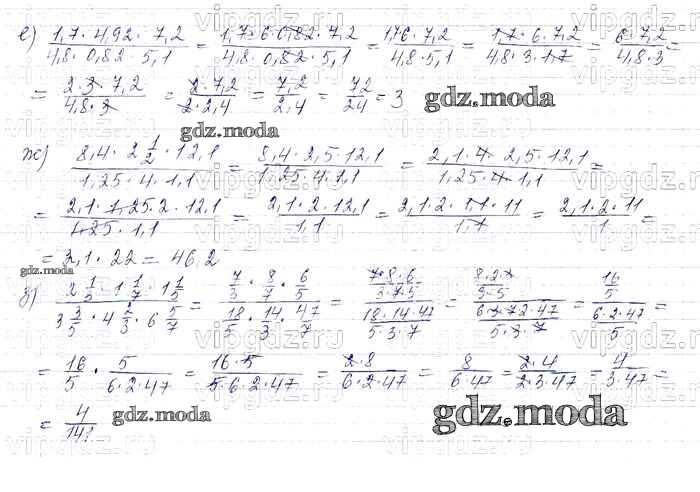 е) (1,7 · 4,92 · 7,2)/(4,8 · 0,82 · 5,1) = (1,7 · 6 · 0,82 · 7,2)/(4,8 · 0,82 · 5,1) = (1,7·6 · 7,2)/(4,8 · 5,1) = (1,7 · 6 · 7,2)/(4,8 · 3 · 1,7) = (6 · 7,2)/(4,8 · 3) =
= (2 · 3 · 7,2)/(4,8 · 3) = (2 · 7,2)/(2 · 2,4) = 7,2/2,4 = 72/24 = 3
gdz.moda
gdz.moda
ж) (8,4 · 2 1/2 · 12,1)/(1,25 · 4 · 1,1) = (8,4 · 2,5 · 12,1)/(1,25 · 4 · 1,1) = (2,1 · 4 · 2,5 · 12,1)/(1,25 · 4 · 1,1) =
= (2,1 · 1,25 · 2 · 12,1)/(1,25 · 1,1) = (2,1 · 2 · 12,1)/1,1 = (2,1 · 2 · 1,1 · 11)/1,1 = (2,1 · 2 · 11)/1 =
= 2,1 · 22 = 46,2
gdz.moda
з) (2 1/3 · 1 1/7 · 1 1/5)/(3 3/5 · 4 2/3 · 6 5/7) = (7/3 · 8/7 · 6/5)/(18/5 · 14/3 · 47/7) = ((7·8·6)/(3·7·5))/((18·14·47)/(5·3·7)) = =
= 16/5 · 5/(6·2·47) = (16·5)/(5·6·2·47) = (2·8)/(6·2·47) = 8/(6·47) = (2·4)/(2·3·47) = 4/(3·47) =
= 4/141
gdz.moda
gdz.moda
vipgdz.ru